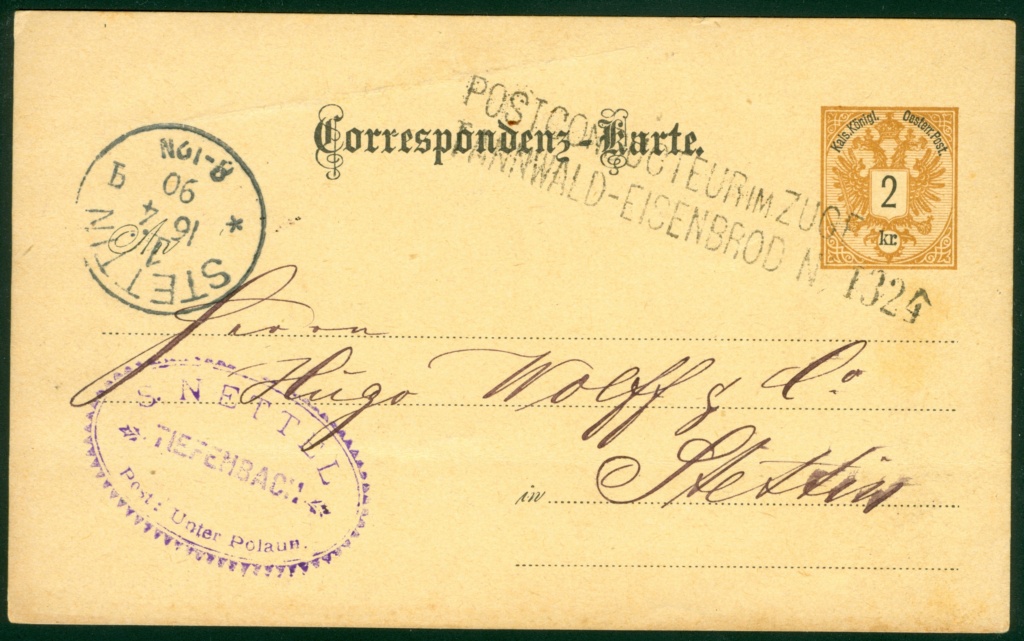 Correspondenz-Karte.
POSTCONDUCTEUR IM ZUGE
TANNWALD-EISENBROD N. 1324
Kais. Königl. Oesterr. Post.
2
kr.
STETTIN
16/4
90
8-19N
*
Herrn
Hugo Wolff & Co
in Stettin
S. NETTEL
TIEFENBACH
Post: Unter Polaun.